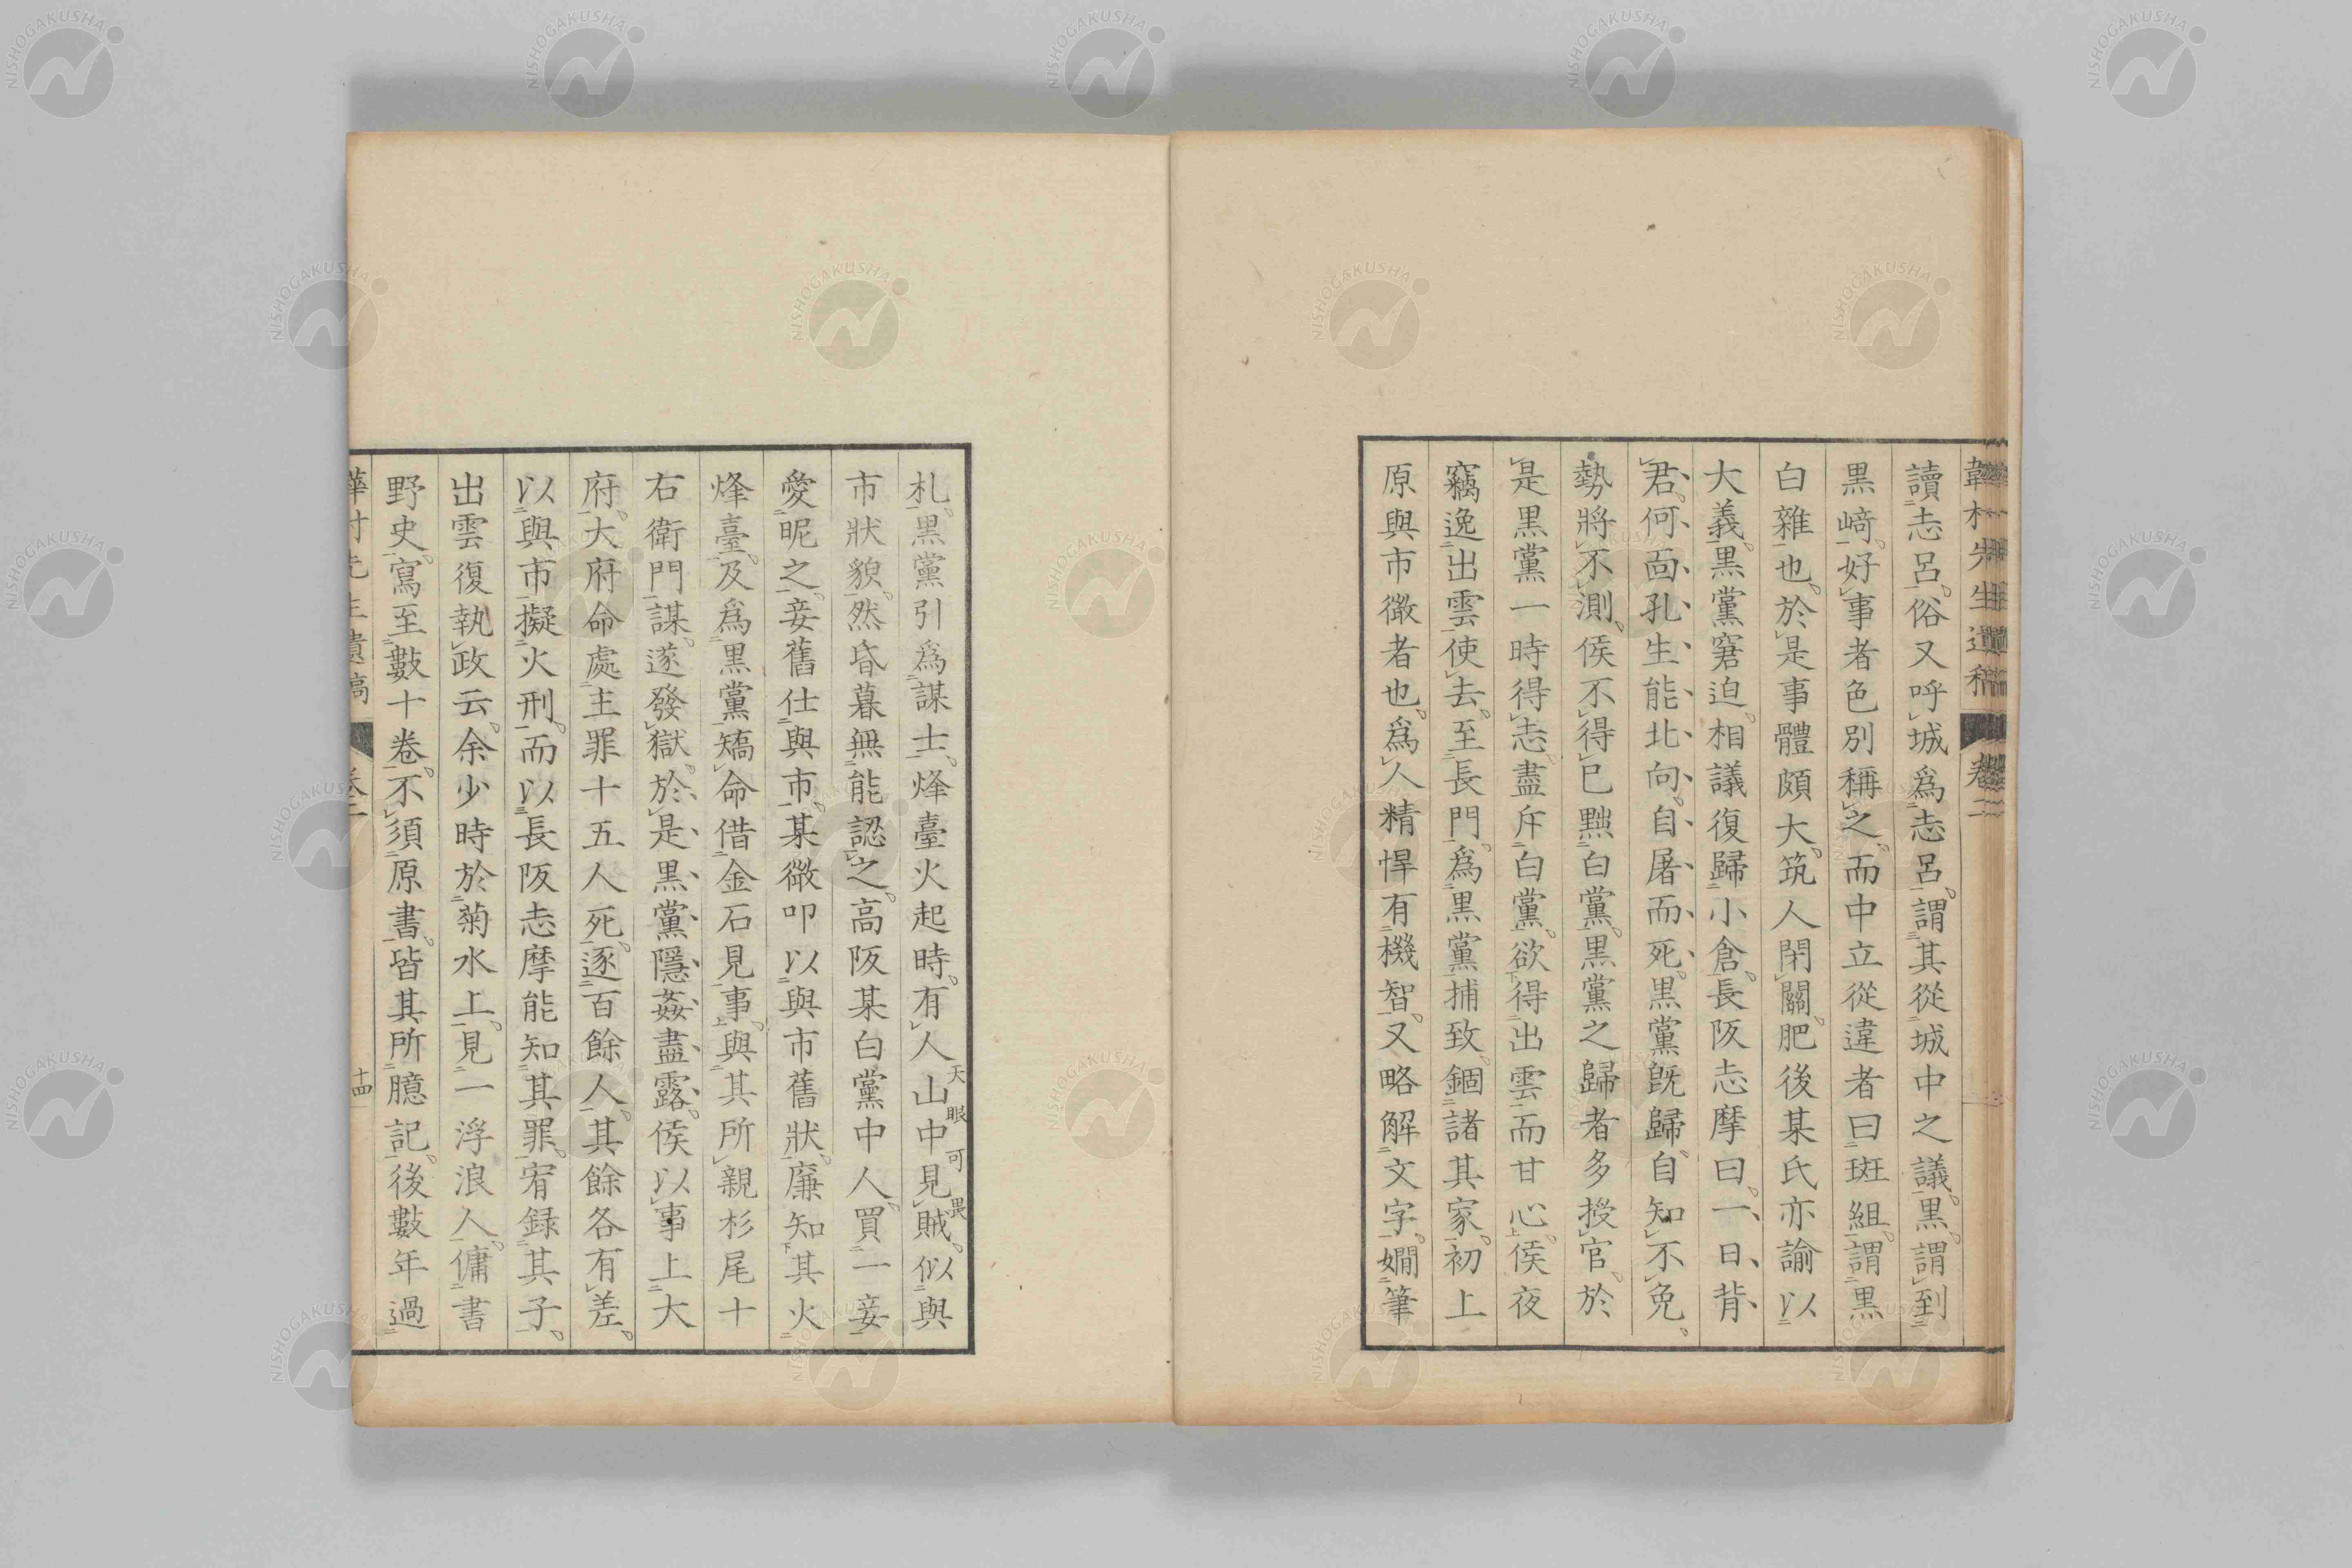 韡村先生遺稿 卷二
讀志呂俗又呼城爲志呂謂其從城中之議黒謂到
黒﨑好事者色別稱之而中立從違者曰斑組謂黒
白雜也於是事體頗大筑人閉關肥後某氏亦諭以
大義黒黨窘迫相議復歸小倉長阪志摩曰一日背
君何面孔生能北向自屠而死黒黨既歸自知不免
勢將不測侯不得已黜白黨黒黨之歸者多授官於
是黒黨一時得志盡斥白黨欲得出雲而甘心侯夜
竊逸出雲使去至長門爲黒黨捕致錮諸其家初上
原與市微者也爲人精悍有機智又略解文字嫺筆
札黒黨引爲謀士烽臺火起時有人山中見賊似與
天眼可畏
市狀貌然昏暮無能認之高阪某白黨中人買一妾
愛昵之妾舊仕與市某微叩以與市舊狀廉知其火
烽臺及爲黒黨矯命借金石見事與其所親杉尾十
右衛門謀遂發獄於是黒黨隱姦盡露侯以事上大
府大府命處主罪十五人死逐百餘人其餘各有差
以與市擬火刑而以長阪志摩能知其罪宥録其子
出雲復執政云余少時於菊水上見一浮浪人傭書
野史寫至數十卷不須原書皆其所臆記後數年過
韡村先生遺稿 卷二 十四
NISHOGAKUSHA